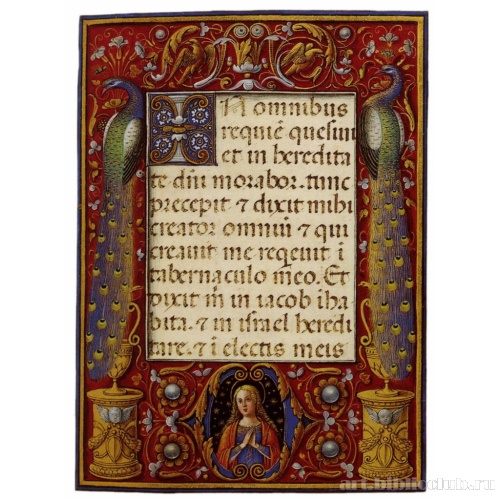 IN omnibus
requiē quesiui
et in heredita
te dñi morabor. tunc
precepit ⁊ dixit mihi
creator omniū ⁊ qui
creauit me reqeuit ī
tabernaculo meo. Et
dixit m̄ in iacob īha
bita. ⁊ in israel heredi
tare. ⁊ ī electis meis
art.biblioclub.ru